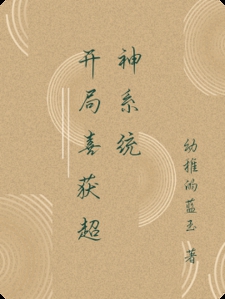 开局喜获超
神系统
幼稚的蓝玉 著